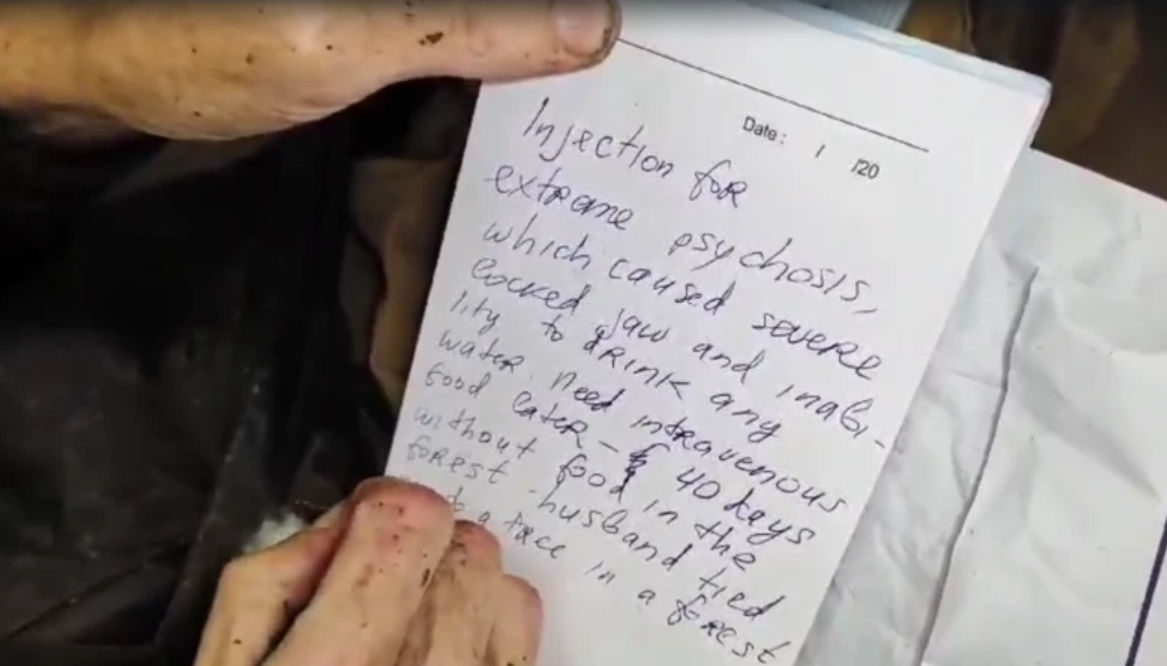 Date: / /20
Injection for
extreme psychosis,
which caused severe
locked jaw and inabi-
lity to drink any
water. need intravenous
food later – 40 days
without food in the
forest. husband tied
a in a forest